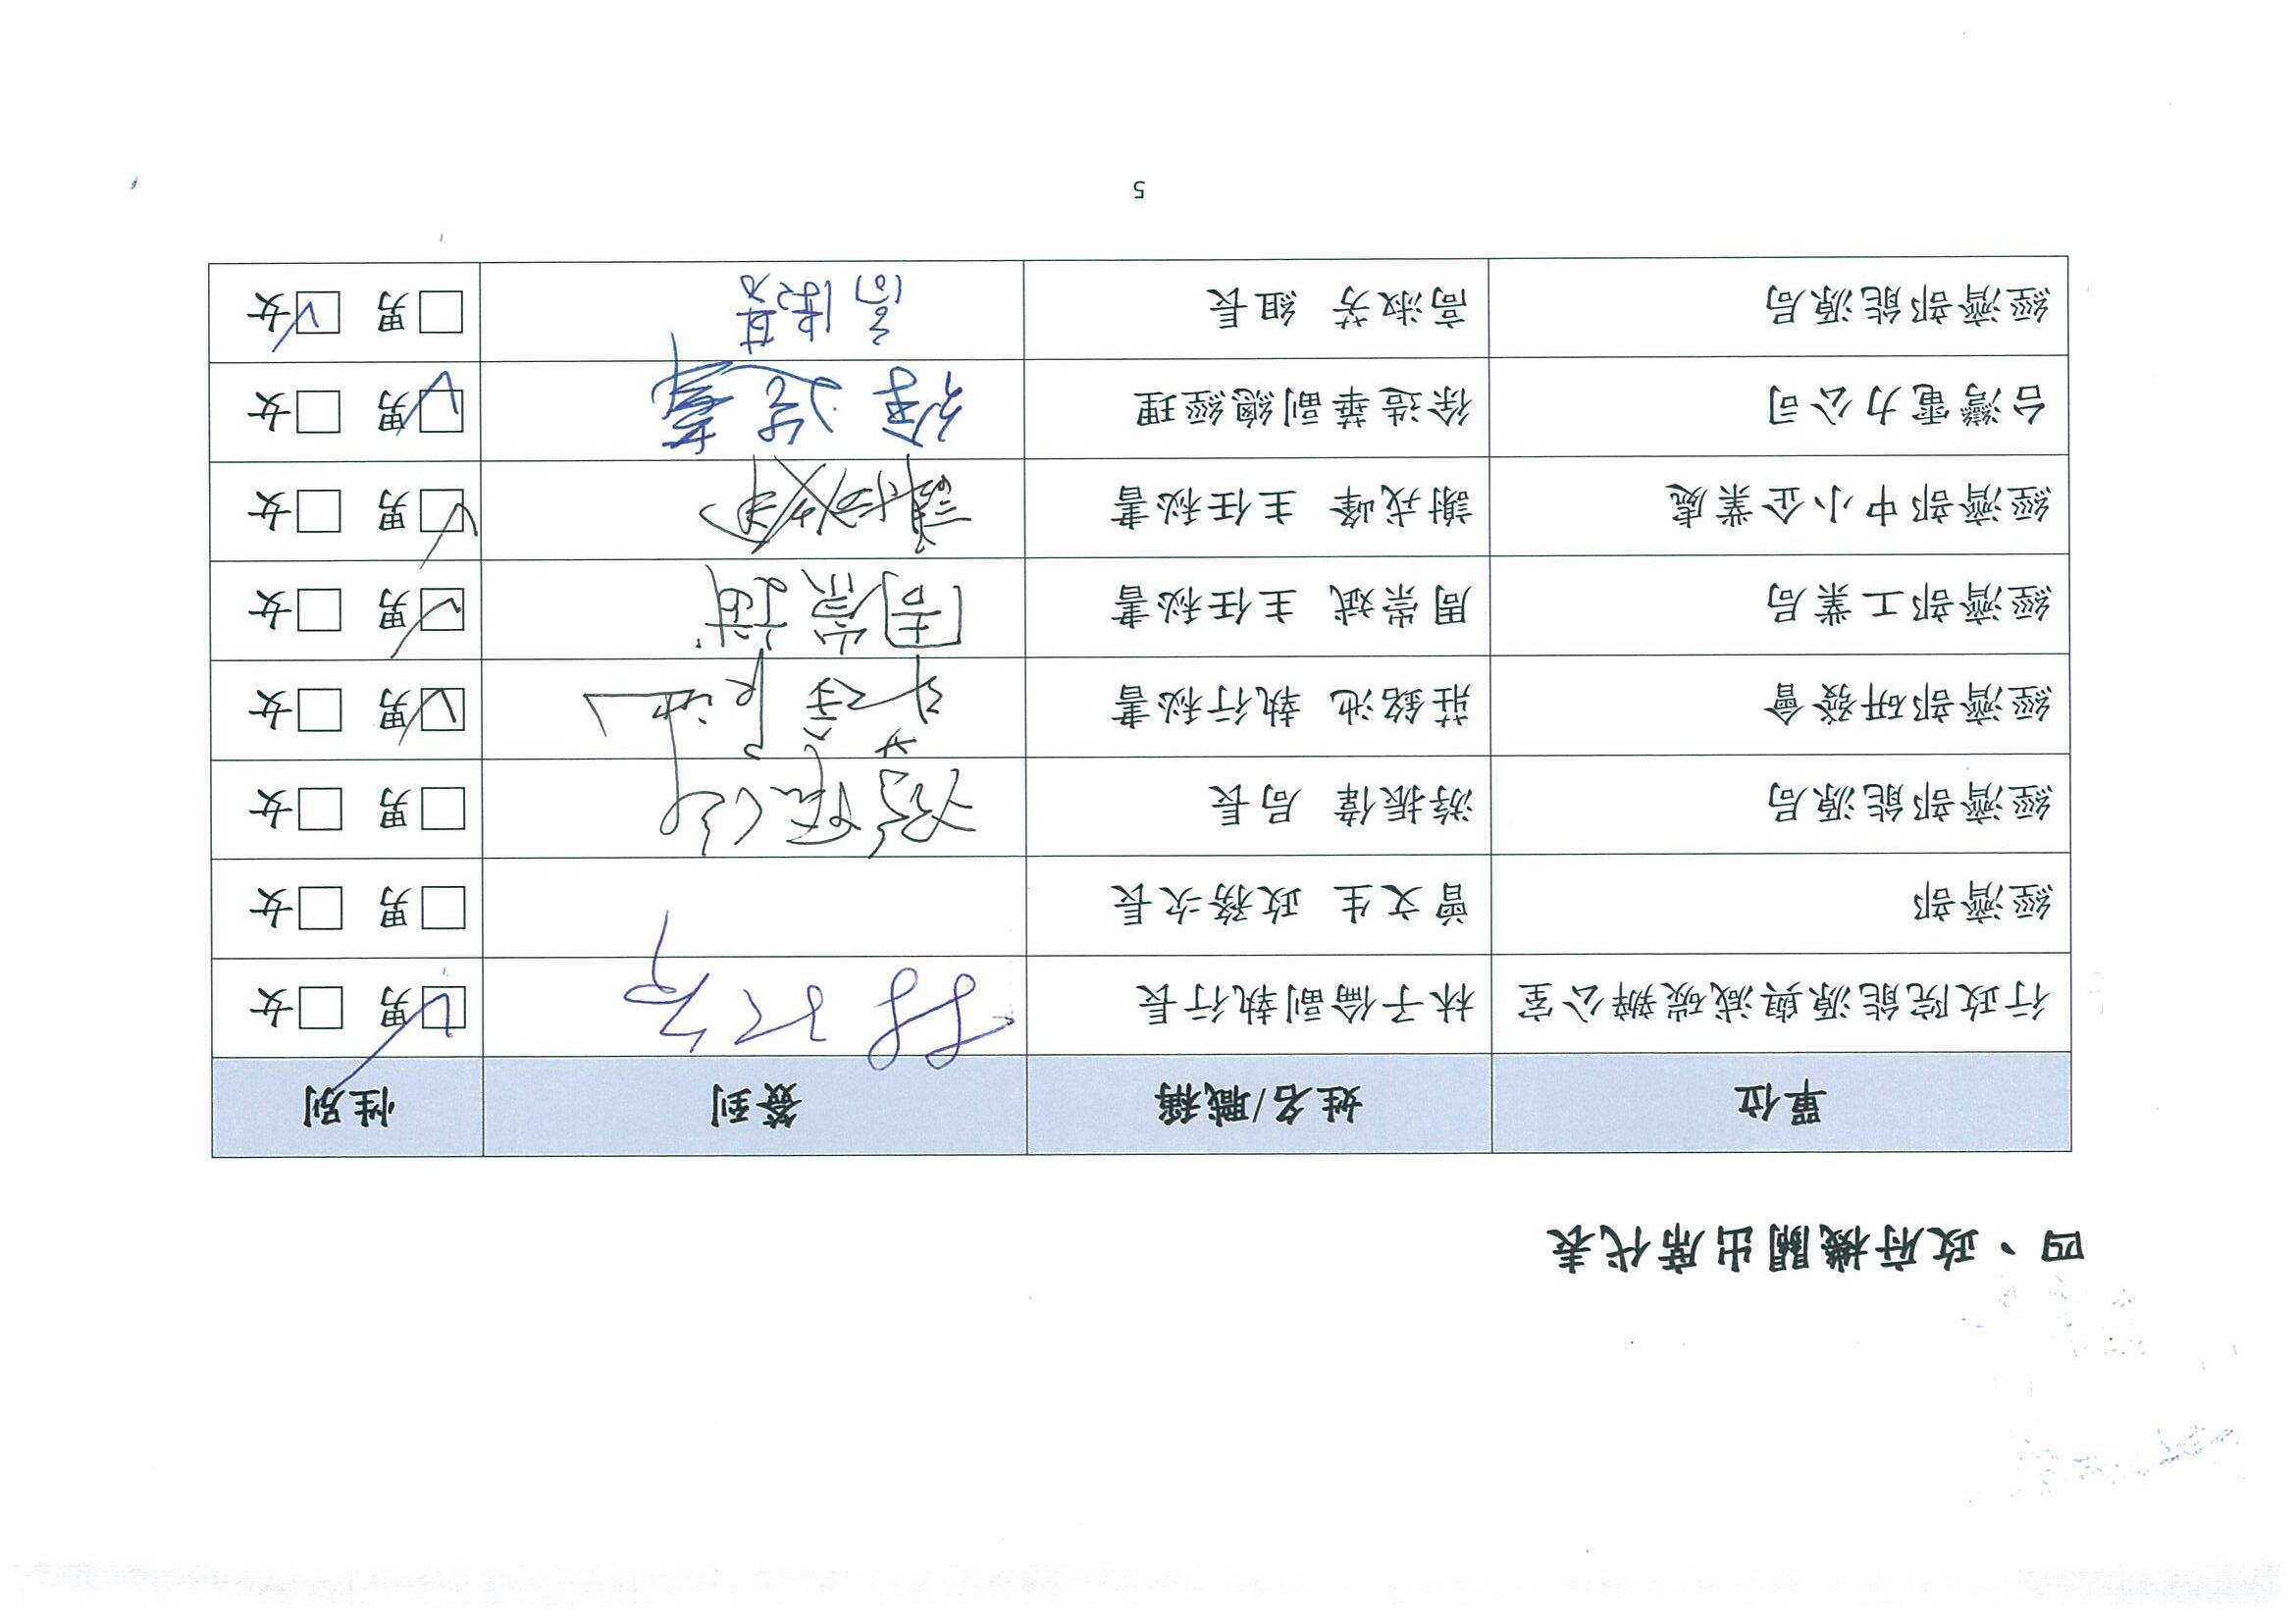 四、政府機關出席代表
單位 姓名/職稱 簽到 性別
行政院能源與減碳辦公室 林子倫副執行長 林子倫 ☑男 □女
經濟部 曾文生 政務次長 □男 □女
經濟部能源局 游振偉 局長 游振偉 □男 □女
經濟部研發會 莊銘池 執行秘書 莊銘池 ☑男 □女
經濟部工業局 周崇斌 主任秘書 周崇斌 ☑男 □女
經濟部中小企業處 謝戎峰 主任秘書 謝戎峰 ☑男 □女
台灣電力公司 徐造華副總經理 徐造華 ☑男 □女
經濟部能源局 高淑芳 組長 高淑芳 □男 ☑女
5